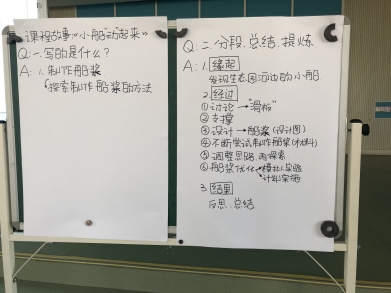 课程故事《小船"动"起来》
Q:一.写的是什么?
A:1.制作船桨
探索制作船桨的方法
Q:二.分段.总结.提炼
A:1.缘起
发现生态园运动的小船
2.经过
①讨论→"滑板"
②支撑
③设计→船桨(设计图)
④不断尝试制作船桨(材料)
⑤调整思路 再探索
⑥船桨优化→模拟实验
计划实施
3.结果
反思.总结